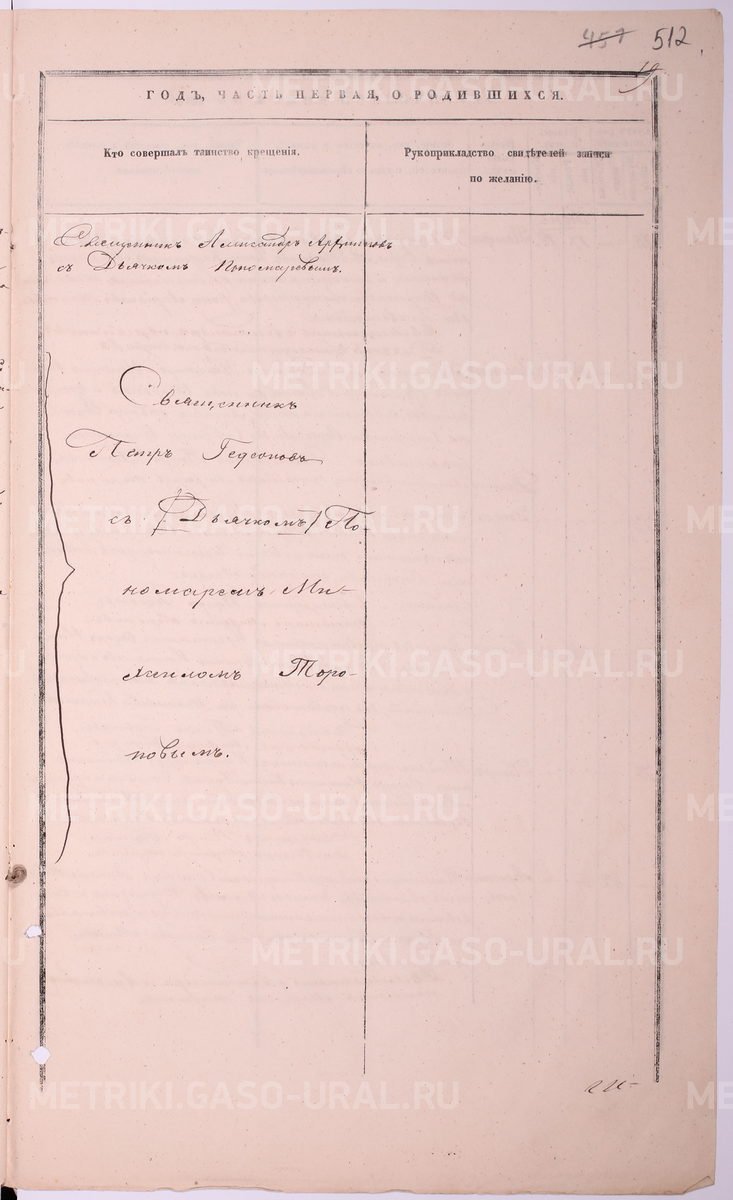 457 512
19
ГОДЪ, ЧАСТЬ ПЕРВАЯ, О РОДИВШИХСЯ.
Кто совершалъ таинство крещенія.
Рукоприкладство свидѣтелей записи
по желанію.
Священникъ Александръ
съ Дьячкомъ Пономаревымъ.
Священникъ
Петръ Гедеоновъ
съ [Дьячкомъ] По-
номаремъ Ми-
хаиломъ Торо-
повымъ.
METRIKI.GASO-URAL.RU